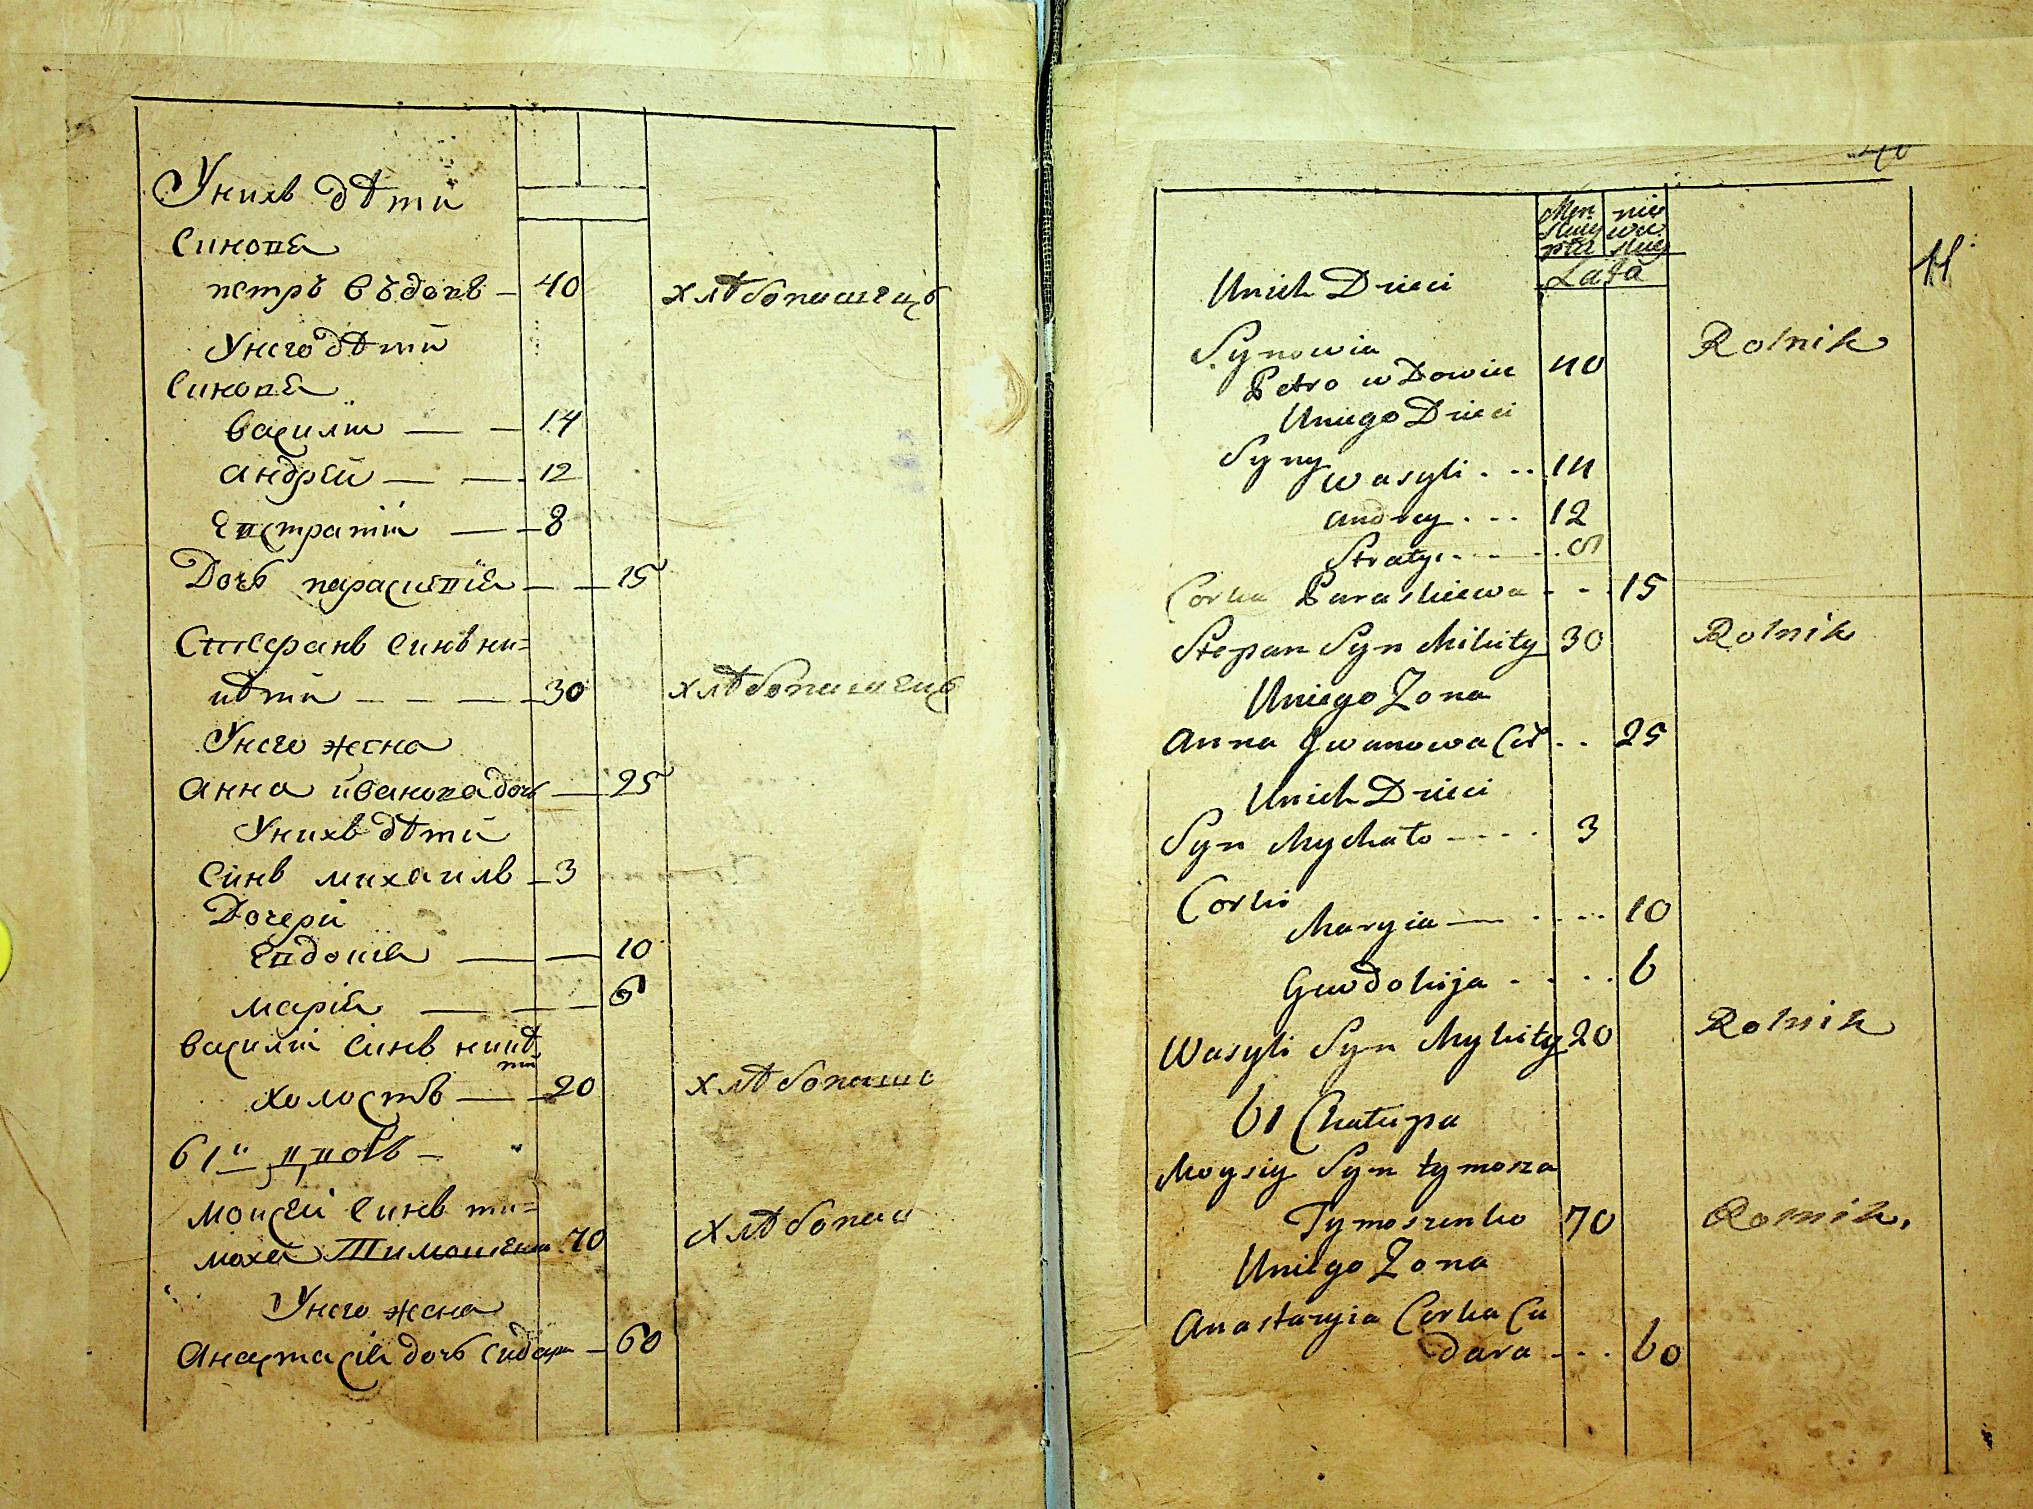 Унихъ дѣти
Синове
петръ въдовъ — 40 хлѣбопашецъ
Унего дѣти
Синове
василій — — 14
андрей — — 12
Евстратій — — 8
Дочь параскевіе — — 15
Стеѳанъ синъ ни=
кѣти — — — 30 хлѣбопашецъ
Унего жена
анна иванова дочь — 25
Унихъ дѣти
Синъ михаилъ — 3
Дочери
Евдокіе — — 10
маріе — — — 6
василій Синъ никѣ
ти
холостъ — — 20 хлѣбопаше
61" двовъ —
Моисей Синъ ти=
моха Тимошенко 70 хлѣбопаш
Унего жена
Анастасіе дочь Сидора — 60
Men nie
skiey wie
płci skiey
Lata
11
Unich Dzieci
Synowia Rolnik
Petro w Dowiec 40
Uniego Dzieci
Syny
Wasyli . -- 14
Andrey . -- 12
Straty . - - - 8
Corka Paraskiewa - - . 15
Stepan Syn Mikity 30 Rolnik
Uniego Zona
Anna Jwanowa Cór . . 25
Unich Dzieci
Syn Mychało - - - - 3
Corki
Maryia — - - . . 10
Gewdokija - . . . 6
Wasyli Syn Mykity 20 Rolnik
61 Chałupa
Moysiy Syn tymosza
Tymoszenko 70 Rolnik.
Uniego Zona
Anastazyia Corka Cu
dara - - . 60